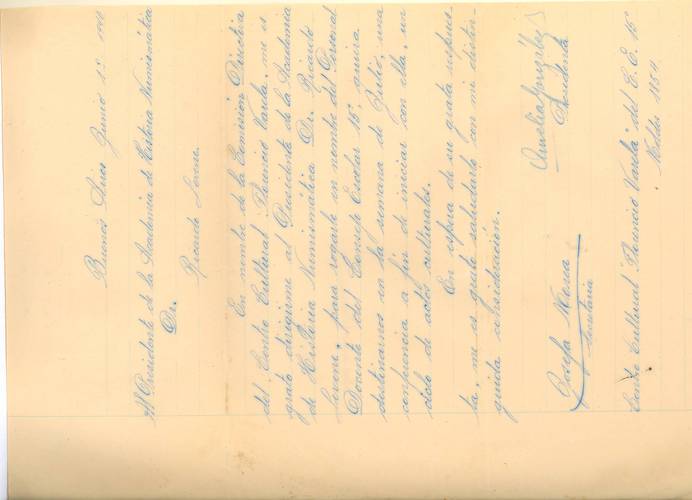 Buenos Aires Junio 1º
Al Presidente de la Academia de Historia Numismática
Dr.
Ricardo Levene.
En nombre de la Comisión Directiva
del Centro Cultural Florencio Varela, me es
grato dirigirme al Presidente de la Academia
de Historia Numismática Dr. Ricardo
Levene, para rogarle en nombre del Personal
Docente del Consejo Escolar 15º, quiera
destinarnos en la semana de Julio, una
conferencia a fin de iniciar con ella, un
ciclo de actos culturales.
En espera de su grata respues-
ta, me es grato saludarlo con mi distin-
guida consideración.
Amelia González
Presidenta
Josefa Mena
Secretaria
Centro Cultural "Florencio Varela" del C. E. 15º